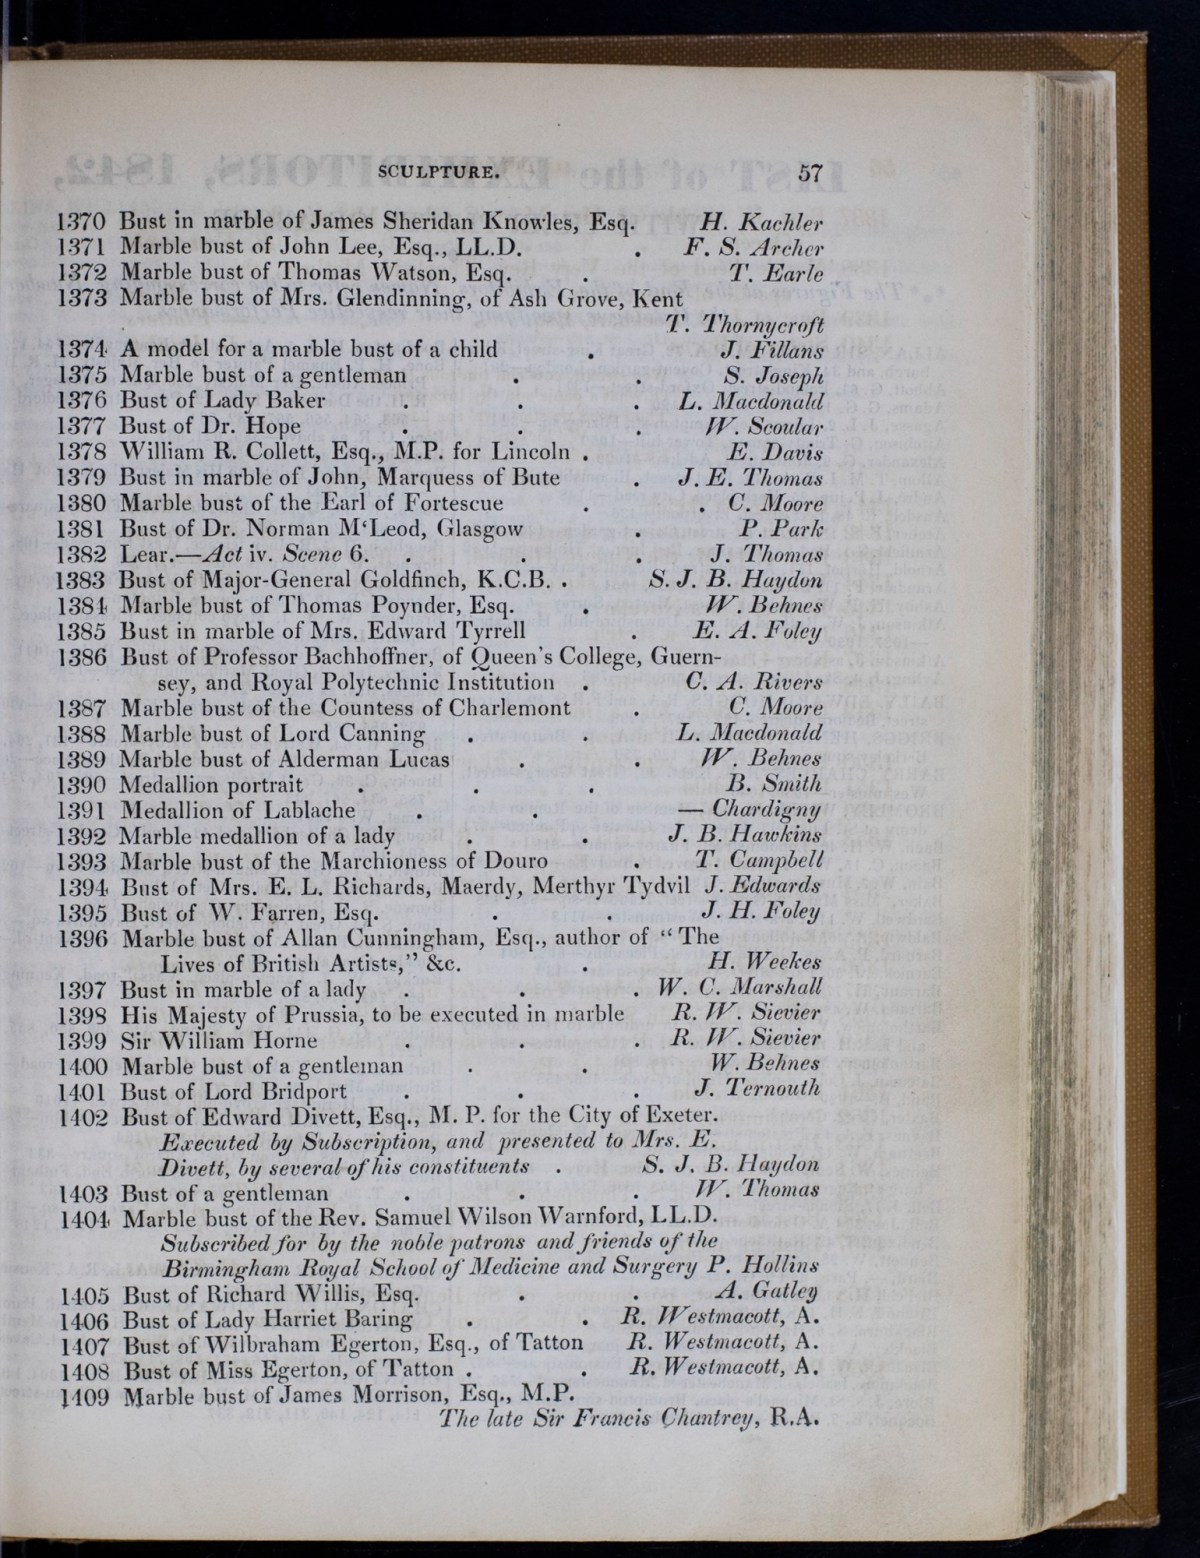 SCULPTURE. 57
1370 Bust in marble of James Sheridan Knowles, Esq. H. Kachler
1371 Marble bust of John Lee, Esq., LL.D. . F. S. Archer
1372 Marble bust of Thomas Watson, Esq. . T. Earle
1373 Marble bust of Mrs. Glendinning, of Ash Grove, Kent
T. Thornycroft
1374 A model for a marble bust of a child . J. Fillans
1375 Marble bust of a gentleman . . S. Joseph
1376 Bust of Lady Baker . . . L. Macdonald
1377 Bust of Dr. Hope . . . W. Scoular
1378 William R. Collett, Esq., M.P. for Lincoln . E. Davis
1379 Bust in marble of John, Marquess of Bute . J. E. Thomas
1380 Marble bust of the Earl of Fortescue . . C. Moore
1381 Bust of Dr. Norman M‘Leod, Glasgow . P. Park
1382 Lear.—Act iv. Scene 6. . . . J. Thomas
1383 Bust of Major-General Goldfinch, K.C.B. . S. J. B. Haydon
1384 Marble bust of Thomas Poynder, Esq. . W. Behnes
1385 Bust in marble of Mrs. Edward Tyrrell . E. A. Foley
1386 Bust of Professor Bachhoffner, of Queen's College, Guern-
sey, and Royal Polytechnic Institution . C. A. Rivers
1387 Marble bust of the Countess of Charlemont . C. Moore
1388 Marble bust of Lord Canning . . L. Macdonald
1389 Marble bust of Alderman Lucas . . W. Behnes
1390 Medallion portrait . . . B. Smith
1391 Medallion of Lablache . . — Chardigny
1392 Marble medallion of a lady . . J. B. Hawkins
1393 Marble bust of the Marchioness of Douro . T. Campbell
1394 Bust of Mrs. E. L. Richards, Maerdy, Merthyr Tydvil J. Edwards
1395 Bust of W. Farren, Esq. . . J. H. Foley
1396 Marble bust of Allan Cunningham, Esq., author of “The
Lives of British Artists,” &c. . H. Weekes
1397 Bust in marble of a lady . . . W. C. Marshall
1398 His Majesty of Prussia, to be executed in marble R. W. Sievier
1399 Sir William Horne . . . R. W. Sievier
1400 Marble bust of a gentleman . . W. Behnes
1401 Bust of Lord Bridport . . . J. Ternouth
1402 Bust of Edward Divett, Esq., M. P. for the City of Exeter.
Executed by Subscription, and presented to Mrs. E.
Divett, by several of his constituents . S. J. B. Haydon
1403 Bust of a gentleman . . . W. Thomas
1404 Marble bust of the Rev. Samuel Wilson Warnford, LL.D.
Subscribed for by the noble patrons and friends of the
Birmingham Royal School of Medicine and Surgery P. Hollins
1405 Bust of Richard Willis, Esq. . . A. Gatley
1406 Bust of Lady Harriet Baring . . R. Westmacott, A.
1407 Bust of Wilbraham Egerton, Esq., of Tatton R. Westmacott, A.
1408 Bust of Miss Egerton, of Tatton . . R. Westmacott, A.
1409 Marble bust of James Morrison, Esq., M.P.
The late Sir Francis Chantrey, R.A.